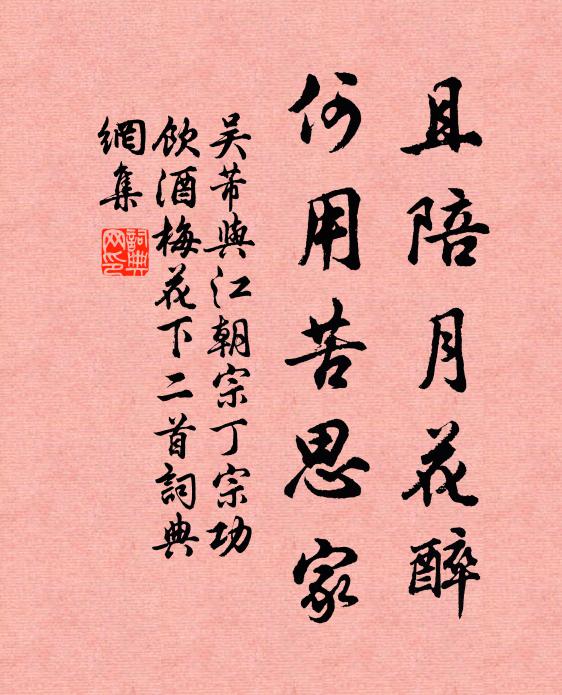 且陪月花醉
何用苦思家
吴芾與江朝宗丁宗功
飲酒梅花下二首詞典
網集
詞典網印